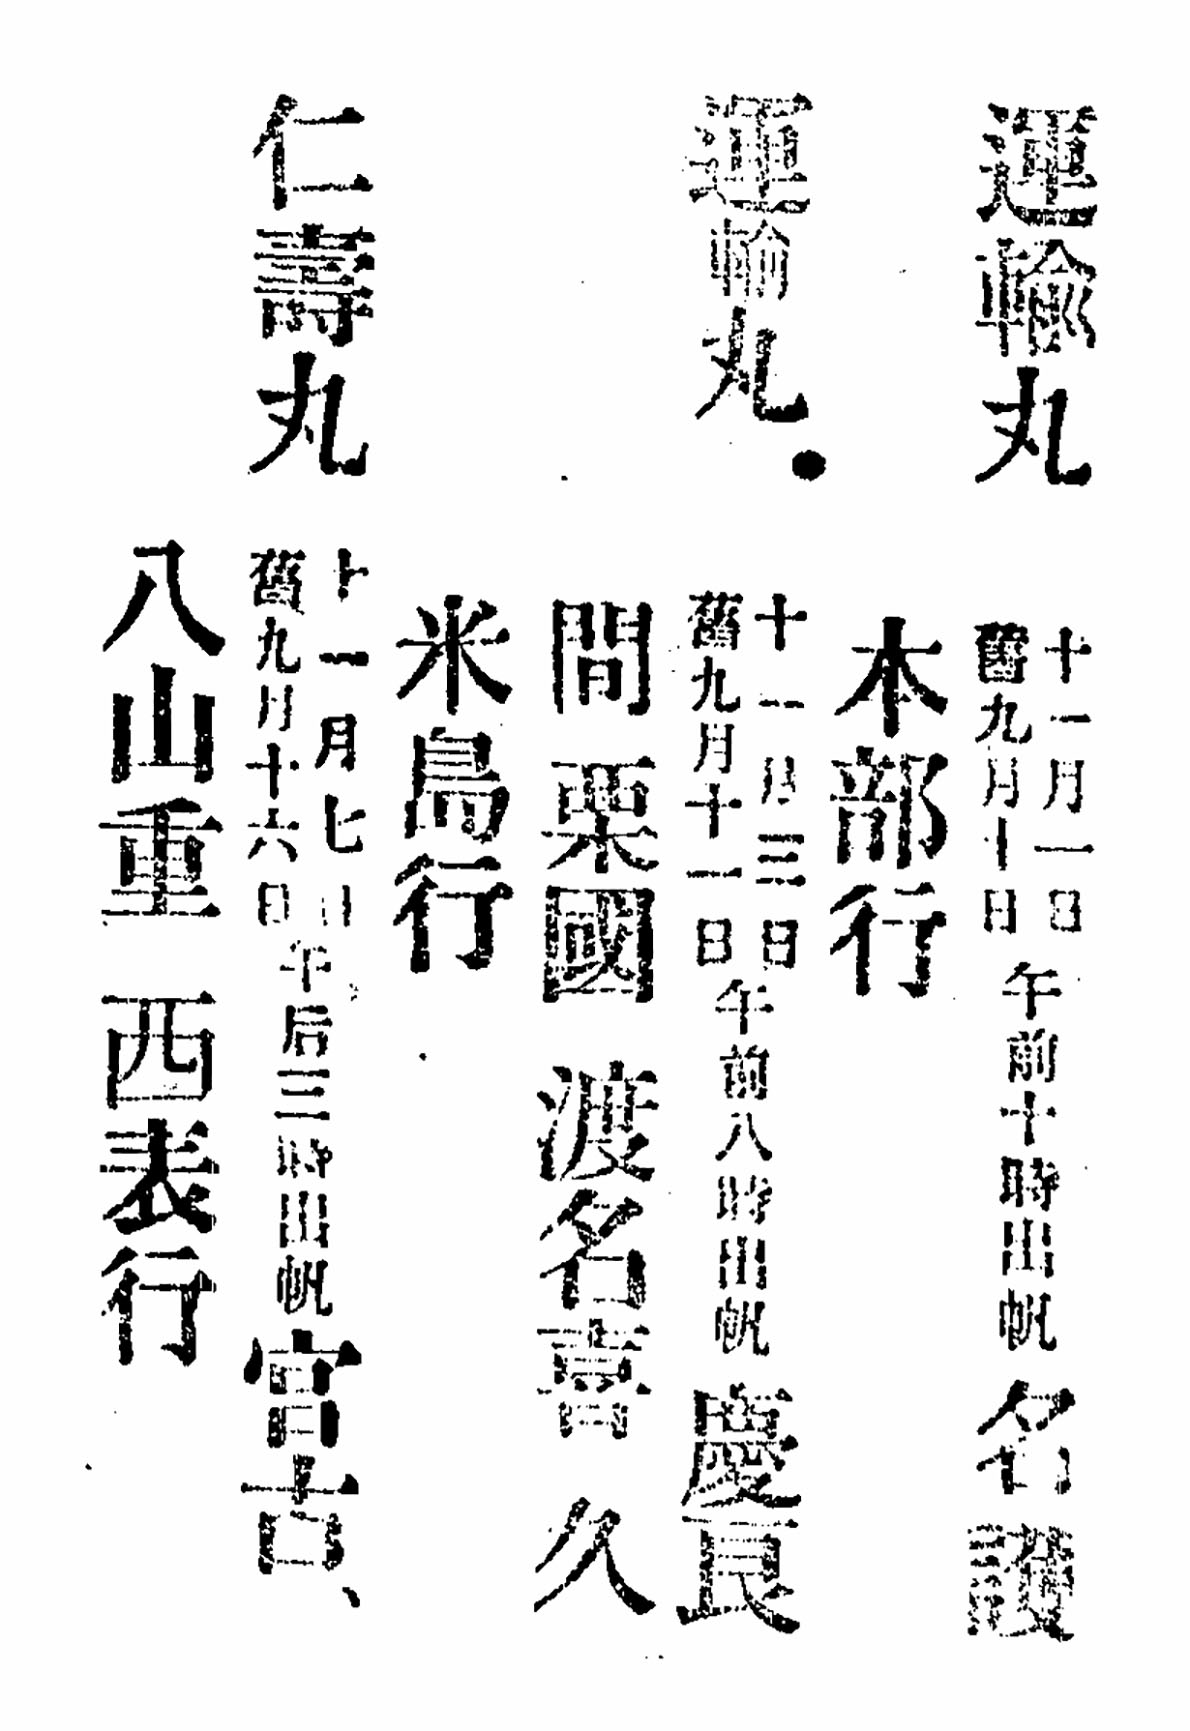 運輸丸 十一月一日 舊九月十日 午前十時出帆 名護
本部行
運輸丸 十一月三日 舊九月十一日 午前八時出帆 慶良
間 粟國 渡名喜 久
米島行
仁壽丸 十一月七日 舊九月十六日 午后三時出帆 宮古、
八山重 西表行